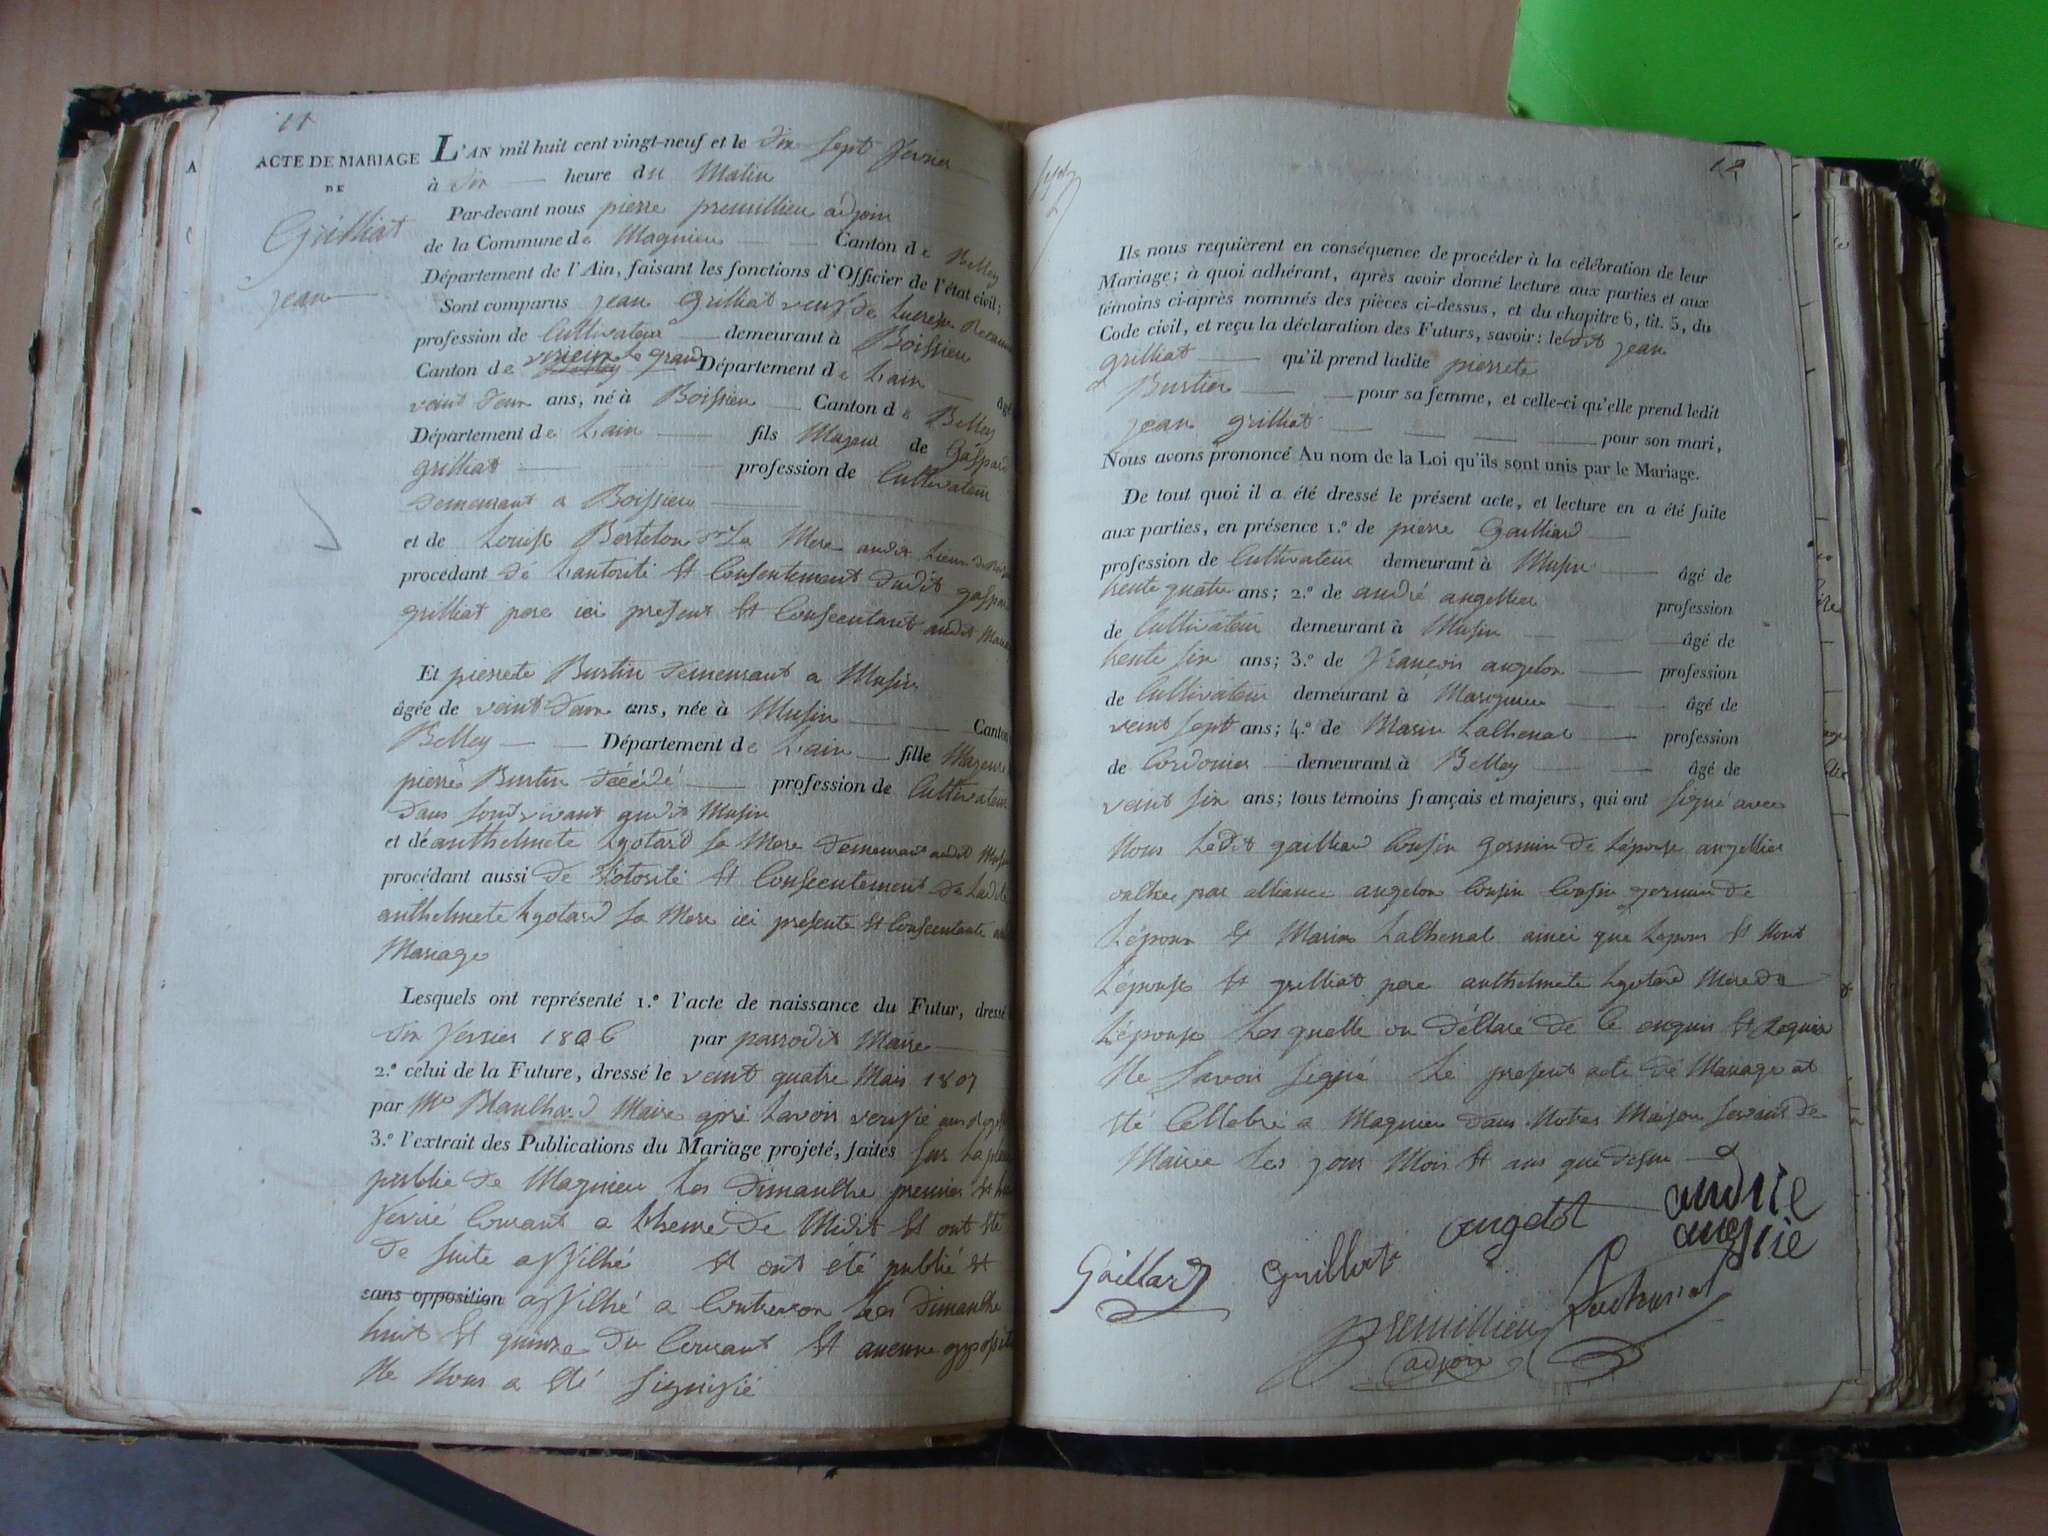 11
ACTE DE MARIAGE
DE
Grilliat
jean
L'AN mil huit cent vingt-neuf et le dix sept fevrier
à dix heure du Matin
Par-devant nous pierre premillieu adjoin
de la Commune de Magnieu Canton de Belley
Département de l'Ain, faisant les fonctions d'Officier de l'état civil;
Sont comparus jean Grilliat veuf de
profession de Cultivateur demeurant à Boissieu
Canton de virieux le grand Département de Lain âgé
vaint deux ans, né à Boissieu Canton de Belley
Département de Lain fils Majeur de Gaspard
grilliat profession de Cultivateur
demeurant a Boissieu
et de Louise Bertelon La Mere audit Lieu
procédant de Lautorité et Consentement dudit gaspar
grilliat pere ici present et Consceentant audit
Et pierrete Burtin demeurant a Musin
âgée de vaint deux ans, née à Musin Canton
Belley Département de Lain fille Majeure
pierre Burtin décédé profession de Cultivateur
dans son vivant audit Musin
et de anthelmete hyotard sa Mere demeurant audit Musin
procédant aussi de Lotorité et Consceentement de Ladite
anthelmete hyotard sa Mere ici presente et Consceentante au
Mariage
Lesquels ont représenté 1.º l'acte de naissance du Futur, dressé
dix fevrier 1806 par parrodit Maire
2.º celui de la Future, dressé le vaint quatre Mais 1807
par Mr Blanchard Maire apré Lavoir verifié aux
3.º l'extrait des Publications du Mariage projeté, faites sur La
public de Magnieu Les dimanche premier et
fevrié Courant a Lheure de Midit et ont été
de suite affiché et ont été publié et
sans opposition affiché a Contrevon Les dimanche
huit et quinze du Courant et aucune
Ne Nous a été signifié
12
Ils nous requièrent en conséquence de procéder à la célébration de leur
Mariage; à quoi adhérant, après avoir donné lecture aux parties et aux
témoins ci-après nommés des pièces ci-dessus, et du chapitre 6, tit. 5, du
Code civil, et reçu la déclaration des Futurs, savoir: ledit jean
grilliat qu'il prend ladite pierrete
Burtin pour sa femme, et celle-ci qu'elle prend ledit
jean grilliat pour son mari,
Nous avons prononcé Au nom de la Loi qu'ils sont unis par le Mariage.
De tout quoi il a été dressé le présent acte, et lecture en a été faite
aux parties, en présence 1.º de pierre Gailliard
profession de Cultivateur demeurant à Musin âgé de
trente quatre ans; 2.º de andré angellier profession
de Cultivateur demeurant à Musin âgé de
trente six ans; 3.º de françois angelot profession
de Cultivateur demeurant à Marignieu âgé de
vaint sept ans; 4.º de Marin Lachenal profession
de Cordonier demeurant à Belley âgé de
vaint six ans; tous témoins français et majeurs, qui ont signé avec
Nous Ledit gailliard Cousin germin de Lépouse angellier
par alliance angelot Cousin Cousin germin de
Lépoux et Marin Lachenal ainci que Lepoux et Nont
Lépouse et grilliat pere anthelmete hyotard Mere de
Lépouse Les quelle on déClaré de Ce enquis et Requis
Ne savoir signé Le present acte de Mariage at
été Cellebré a Magnieu dans Notre Maison servant de
Mairie Les jour Mois et ans que desur
Gaillard Grilliat angelot andrie
angeie
premillieu Lachenal
adjoin